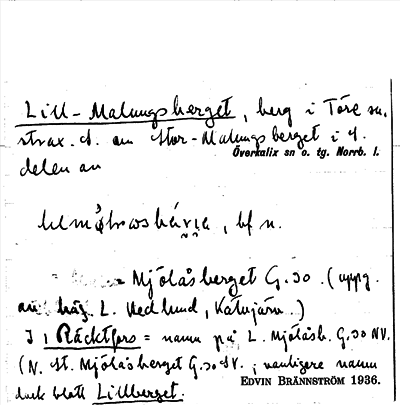 Lill-Malungsberget, berg i Töre sn.
strax S. om Stor-Malungsberget i S.
Överkalix sn o. tg. Norrb. l.
delen av
, bf n.
= Mjölåsberget G.30. (uppg.
av L. Hedlund, Kälvjärv.)
I Räcktfors = namn på L. Mjölåsb. G.30 NV.
(N. St. Mjölåsberget G.30 SV., vanligare namn
dock blott Lillberget.
EDVIN BRÄNNSTRÖM 1936.